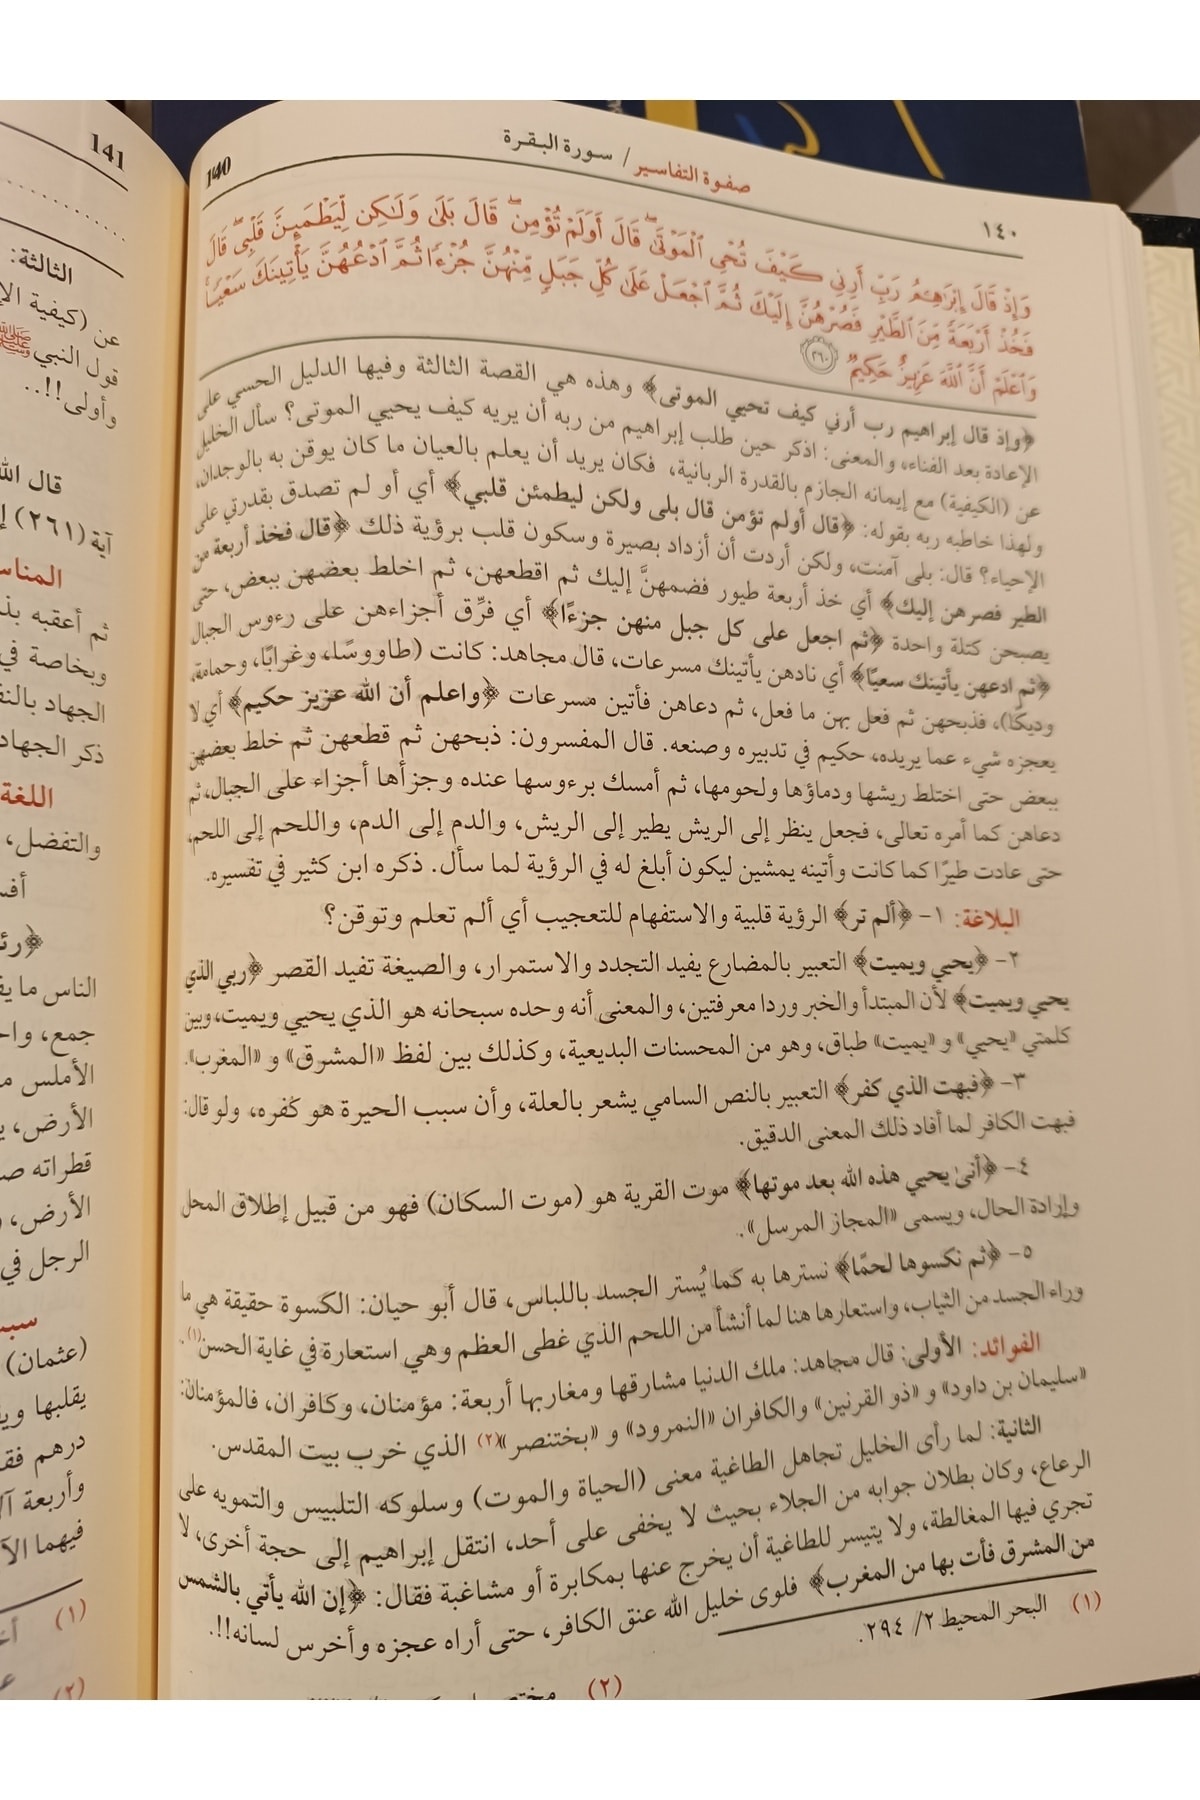 140
صفوة التفاسير / سورة البقرة
١٤٠
وَإِذْ قَالَ إِبْرَٰهِـۧمُ رَبِّ أَرِنِي كَيْفَ تُحْيِ ٱلْمَوْتَىٰ ۖ قَالَ أَوَلَمْ تُؤْمِن ۖ قَالَ بَلَىٰ وَلَـٰكِن لِّيَطْمَئِنَّ قَلْبِي ۖ قَالَ
فَخُذْ أَرْبَعَةً مِّنَ ٱلطَّيْرِ فَصُرْهُنَّ إِلَيْكَ ثُمَّ ٱجْعَلْ عَلَىٰ كُلِّ جَبَلٍ مِّنْهُنَّ جُزْءًا ثُمَّ ٱدْعُهُنَّ يَأْتِينَكَ سَعْيًا ۚ
وَٱعْلَمْ أَنَّ ٱللَّهَ عَزِيزٌ حَكِيمٌ ٢٦٠
﴿وإذ قال إبراهيم رب أرني كيف تحيي الموتى﴾ وهذه هي القصة الثالثة وفيها الدليل الحسي على
الإعادة بعد الفناء، والمعنى: اذكر حين طلب إبراهيم من ربه أن يريه كيف يحيي الموتى؟ سأل الخليل
عن (الكيفية) مع إيمانه الجازم بالقدرة الربانية، فكان يريد أن يعلم بالعيان ما كان يوقن به بالوجدان،
ولهذا خاطبه ربه بقوله: ﴿قال أولم تؤمن قال بلى ولكن ليطمئن قلبي﴾ أي أو لم تصدق بقدرتي على
الإحياء؟ قال: بلى آمنت، ولكن أردت أن أزداد بصيرة وسكون قلب برؤية ذلك ﴿قال فخذ أربعة من
الطير فصرهن إليك﴾ أي خذ أربعة طيور فضمهنَّ إليك ثم اقطعهن، ثم اخلط بعضهن ببعض، حتى
يصبحن كتلة واحدة ﴿ثم اجعل على كل جبل منهن جزءًا﴾ أي فرِّق أجزاءهن على رءوس الجبال
﴿ثم ادعهن يأتينك سعيًا﴾ أي نادهن يأتينك مسرعات، قال مجاهد: كانت (طاووسًا، وغرابًا، وحمامة،
وديكًا)، فذبحهن ثم فعل بهن ما فعل، ثم دعاهن فأتين مسرعات ﴿واعلم أن الله عزيز حكيم﴾ أي لا
يعجزه شيء عما يريده، حكيم في تدبيره وصنعه. قال المفسرون: ذبحهن ثم قطعهن ثم خلط بعضهن
ببعض حتى اختلط ريشها ودماؤها ولحومها، ثم أمسك برءوسها عنده وجزأها أجزاء على الجبال، ثم
دعاهن كما أمره تعالى، فجعل ينظر إلى الريش يطير إلى الريش، والدم إلى الدم، واللحم إلى اللحم،
حتى عادت طيرًا كما كانت وأتينه يمشين ليكون أبلغ له في الرؤية لما سأل. ذكره ابن كثير في تفسيره.
البلاغة: ١- ﴿ألم تر﴾ الرؤية قلبية والاستفهام للتعجيب أي ألم تعلم وتوقن؟
٢- ﴿يحيي ويميت﴾ التعبير بالمضارع يفيد التجدد والاستمرار، والصيغة تفيد القصر ﴿ربي الذي
يحيي ويميت﴾ لأن المبتدأ والخبر وردا معرفتين، والمعنى أنه وحده سبحانه هو الذي يحيي ويميت، وبين
كلمتي «يحيي» و «يميت» طباق، وهو من المحسنات البديعية، وكذلك بين لفظ «المشرق» و «المغرب».
٣- ﴿فبهت الذي كفر﴾ التعبير بالنص السامي يشعر بالعلة، وأن سبب الحيرة هو كفره، ولو قال:
فبهت الكافر لما أفاد ذلك المعنى الدقيق.
٤- ﴿أنىٰ يحيي هذه الله بعد موتها﴾ موت القرية هو (موت السكان) فهو من قبيل إطلاق المحل
وإرادة الحال، ويسمى «المجاز المرسل».
٥- ﴿ثم نكسوها لحمًا﴾ نسترها به كما يُستر الجسد باللباس، قال أبو حيان: الكسوة حقيقة هي ما
وراء الجسد من الثياب، واستعارها هنا لما أنشأ من اللحم الذي غطى العظم وهي استعارة في غاية الحسن(١).
الفوائد: الأولى: قال مجاهد: ملك الدنيا مشارقها ومغاربها أربعة: مؤمنان، وكافران، فالمؤمنان:
«سليمان بن داود» و «ذو القرنين» والكافران «النمرود» و «بختنصر»(٢) الذي خرب بيت المقدس.
الثانية: لما رأى الخليل تجاهل الطاغية معنى (الحياة والموت) وسلوكه التلبيس والتمويه على
الرعاع، وكان بطلان جوابه من الجلاء بحيث لا يخفى على أحد، انتقل إبراهيم إلى حجة أخرى، لا
تجري فيها المغالطة، ولا يتيسر للطاغية أن يخرج عنها بمكابرة أو مشاغبة فقال: ﴿إن الله يأتي بالشمس
من المشرق فأت بها من المغرب﴾ فلوى خليل الله عنق الكافر، حتى أراه عجزه وأخرس لسانه!!.
(١) البحر المحيط ٢/ ٢٩٤.
(٢)
141
الثالثة:
عن (كيفية
قول النبي ﷺ
وأولى!!..
قال الله
آية (٢٦١)
ثم أعقبه
وبخاصة في
الجهاد
ذكر الجهاد
اللغة
والتفضل،
الناس ما
جمع،
الأملس
الأرض،
قطراته
الأرض،
الرجل في
(عثمان)
يقلبها
درهم
وأربعة
فيهما
(١)
(٢)